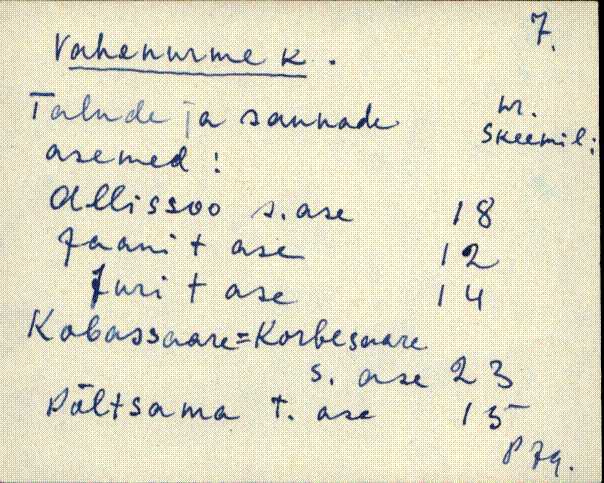 7.
Vahenurme k.
Talude ja saunade
nr.
skeemil:
asemed:
Allissoo s. ase 18
Jaani t ase 12
Juri t ase 14
Kabassaare=Korbesaare
s. ase 23
Põltsama t. ase 15